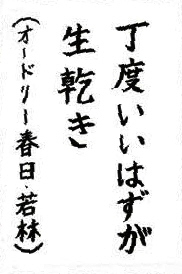 丁度いいはずが
生乾き
（オードリー春日・若林）